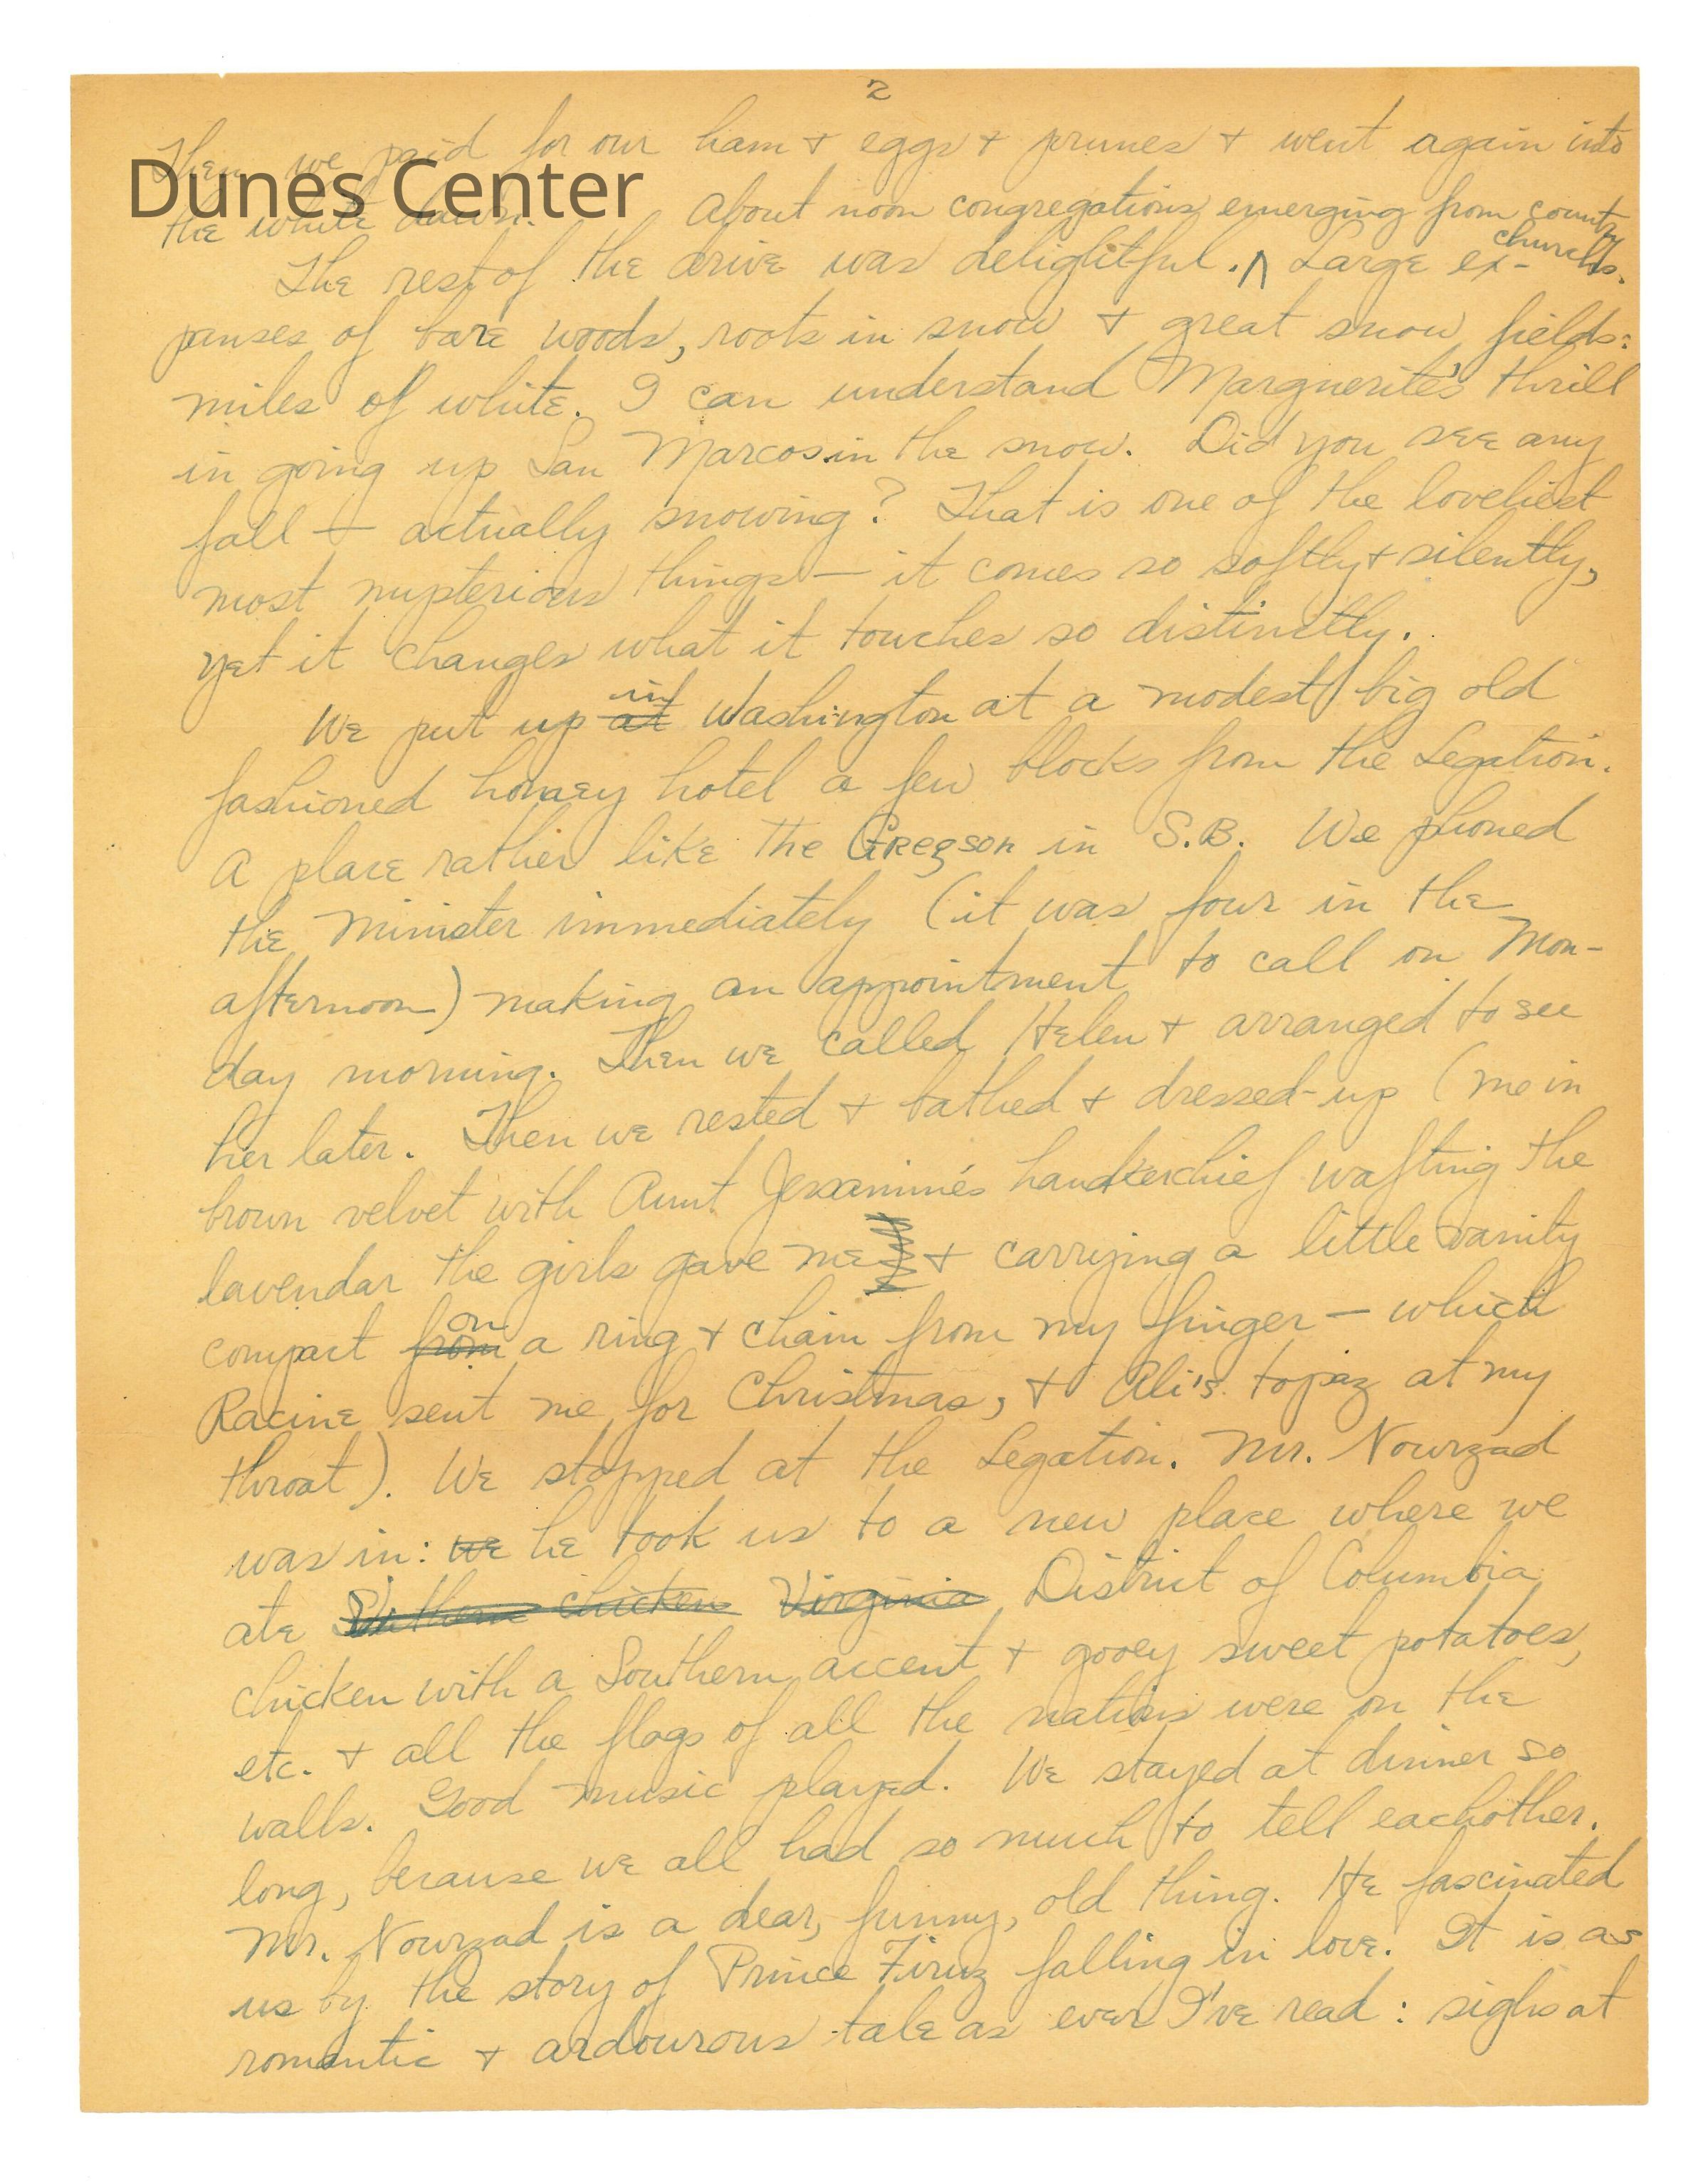 2
Then we paid for our ham + eggs + prunes + went again into
Dunes Center
the white dawn.
About noon congregations emerging from country churches.
The rest of the drive was delightful. ^ Large ex-
panses of bare woods, roots in snow + great snow fields:
miles of white. I can understand Marguerite's thrill
in going up San Marcos in the snow. Did you see any
fall — actually snowing? That is one of the loveliest
most mysterious things — it comes so softly + silently,
yet it changes what it touches so distinctly.
We put up at in Washington at a modest big old
fashioned homey hotel a few blocks from the Legation.
A place rather like the Gregson in S.B. We phoned
the Minister immediately (it was four in the
afternoon) making an appointment to call on Mon-
day morning. Then we called Helen + arranged to see
her later. Then we rested + bathed + dressed-up (me in
brown velvet with Aunt Jessamine's handkerchief wafting the
lavendar the girls gave me + carrying a little vanity
compact from on a ring + chain from my finger — which
Racine sent me for Christmas, + Ali's topaz at my
throat). We stopped at the Legation. Mr. Nowrzad
was in: we he took us to a new place where we
ate Southern chicken Virginia District of Columbia
chicken with a Southern accent + gooey sweet potatoes,
etc. + all the flags of all the nations were on the
walls. Good music played. We stayed at dinner so
long, because we all had so much to tell eachother.
Mr. Nowrzad is a dear, funny, old thing. He fascinated
us by the story of Prince Firuz falling in love. It is as
romantic + ardourous tale as ever I've read: sighs at